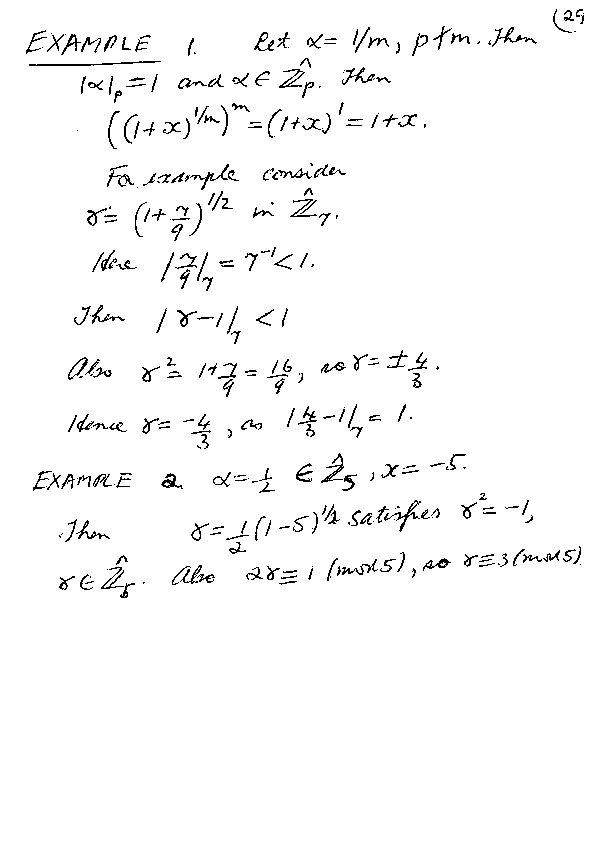 (29
EXAMPLE 1. Let α = 1/m, p∤m. Then
|α|ₚ = 1 and α ∈ Ẑₚ. Then
((1+x)^{1/m})^m = (1+x)^1 = 1+x.
For example consider
γ = (1+7/9)^{1/2} in Ẑ₇.
Here |7/9|₇ = 7⁻¹ < 1.
Then |γ-1|₇ < 1
Also γ² = 1+7/9 = 16/9, so γ = ±4/3.
Hence γ = -4/3, as |4/3-1|₇ = 1.
EXAMPLE 2. α = 1/2 ∈ Ẑ₅, x = -5.
Then γ = 1/2(1-5)^{1/2} satisfies γ² = -1,
γ ∈ Ẑ₅. Also 2γ ≡ 1 (mod 5), so γ ≡ 3 (mod 5)